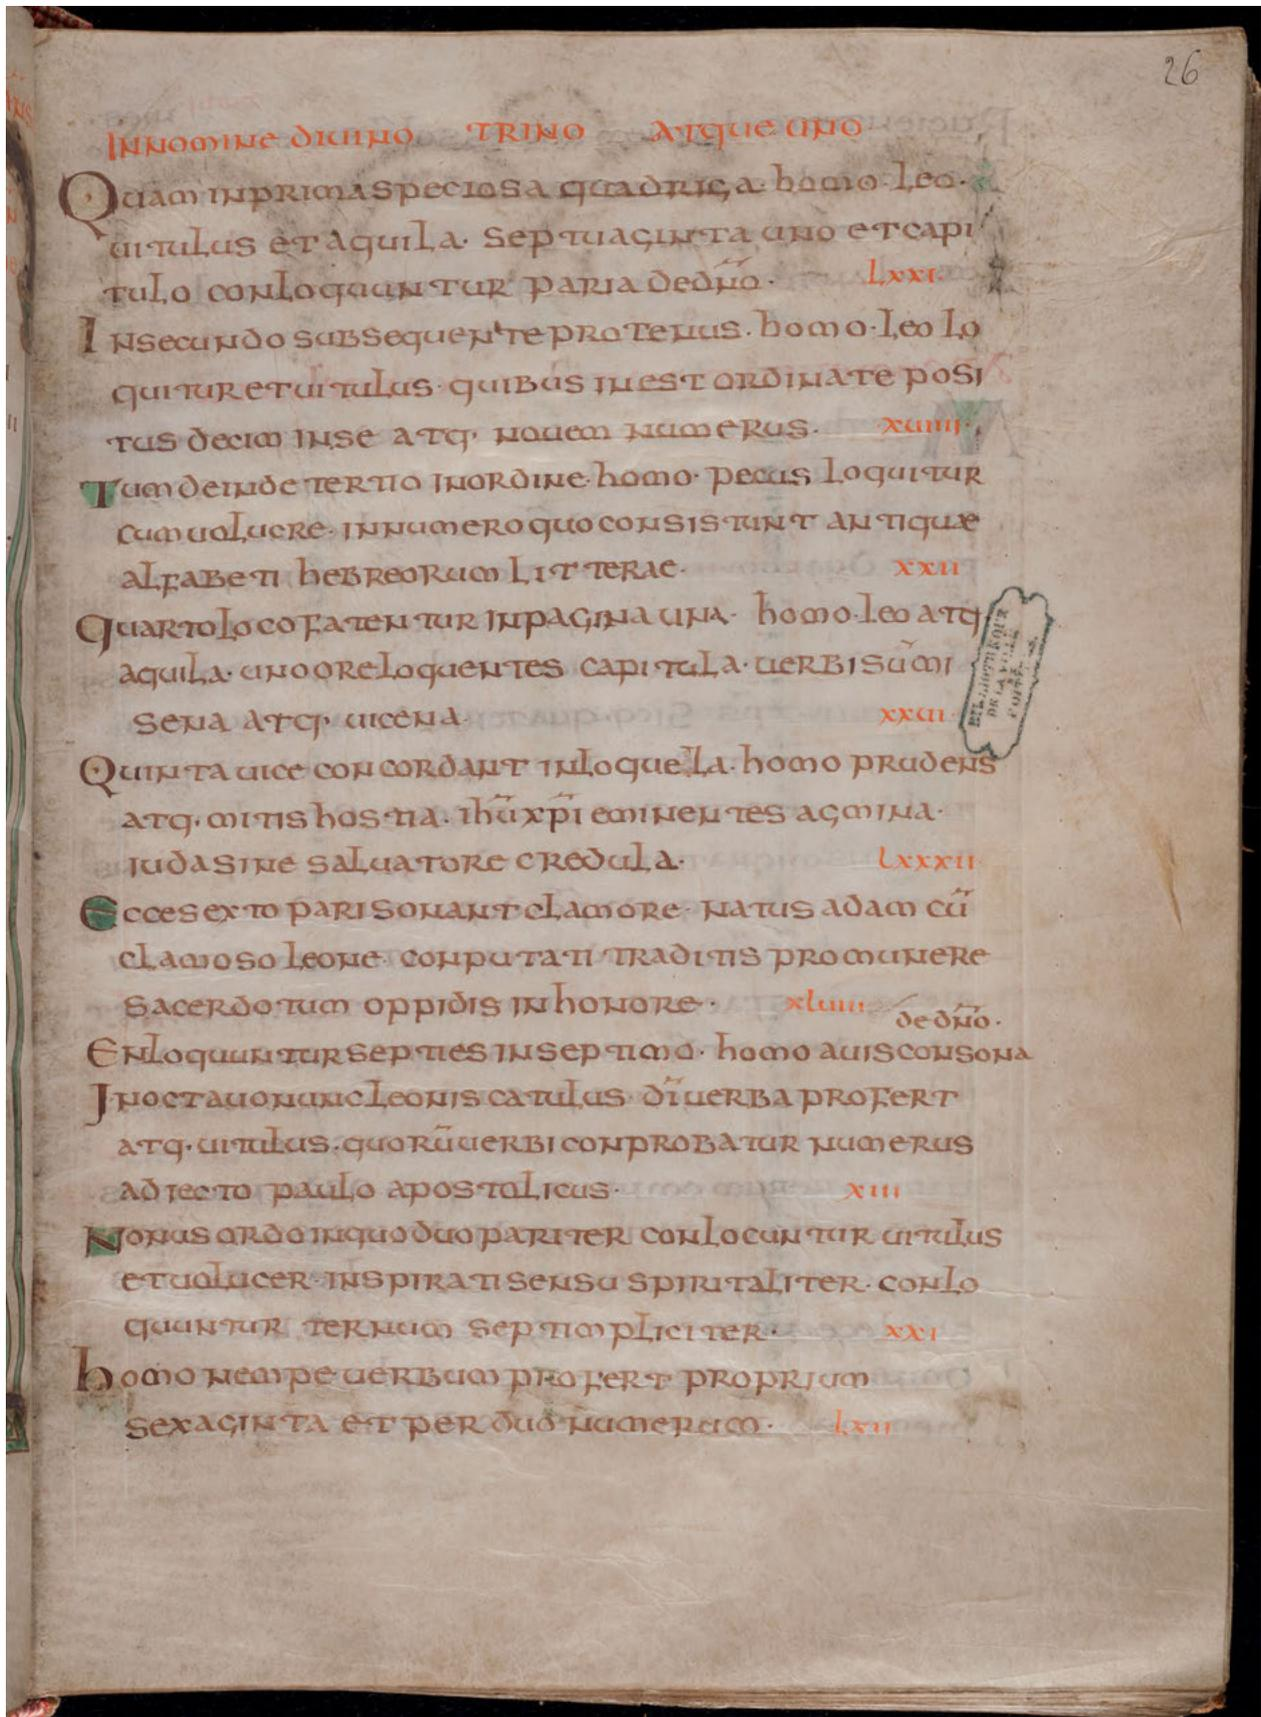 26
IN NOMINE DIUINO TRINO ATQUE UNO
Quam in prima speciosa quadriga. homo. leo.
uitulus et aquila. septuaginta uno et capi
tulo conloquuntur paria de dn̄o. lxxi.
In secundo subsequente protenus. homo. leo lo
quitur et uitulus. quibus inest ordinate posi
tus decim in se atq. nouem numerus. xuiiii.
Tum deinde tertio in ordine. homo. pecus loquitur
cum uolucre. in numero quo consistunt antiquæ
alfabeti hebreorum litterae. xxii
Quarto loco fatentur in pagina una. homo. leo atq
aquila. uno ore loquentes capitula. uerbi sūmi
sena atq. uicena. xxui.
Quinta uice concordant in loquella. homo prudens
atq. mitis hostia. ihū xp̄i eminentes agmina.
iuda sine saluatore credula. lxxxii
Ecce sexto pari sonant clamore. natus adam cū
clamoso leone. conputati traditis pro munere
sacerdotum oppidis in honore. xluiii
de dn̄o.
Enloquuntur septies in septimo. homo auis consona
In octauo nunc leonis catulus. dī uerba profert
atq. uitulus. quorū uerbi conprobatur numerus
adiecto paulo apostolicus. xiii
Nonus ordo in quo duo pariter conlocuntur uitulus
et uolucer. inspirati sensu spiritaliter. conlo
quuntur ternum septimpliciter. xxi
homo nempe uerbum profert proprium
sexaginta et per duo numerum. lxii
BIBLIOTHÈQUE
DE LA VILLE
DE
POITIERS